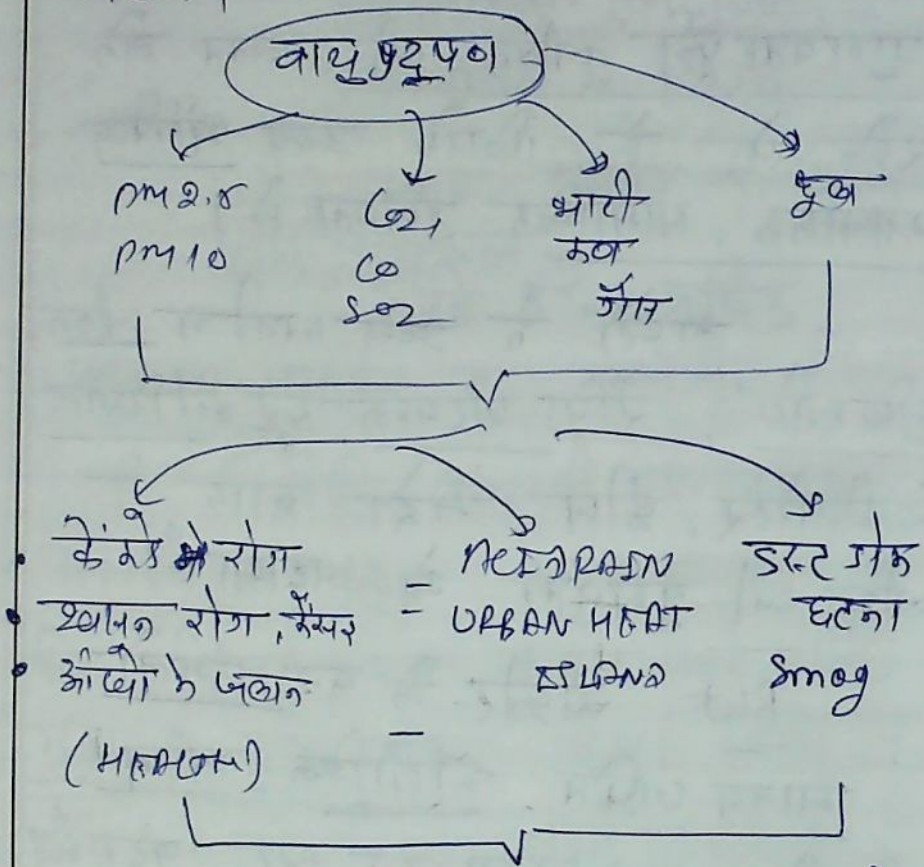 वायु प्रदूषण
PM 2.5
PM 10
CO2
CO
SO2
भारी
कण
गैस
धूल
फेंफड़े रोग
श्वसन रोग, कैंसर
आँखो मे जलन
(HEALTH)
ACID RAIN
URBAN HEAT
ISLAND
डस्ट
घटना
Smog